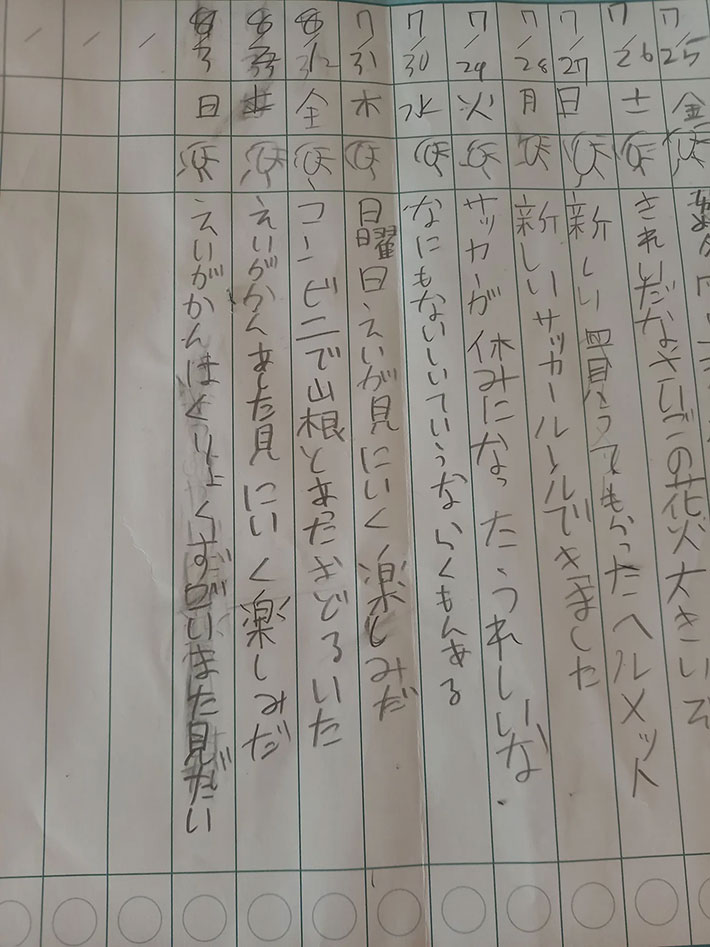 7/25 金
7/26 土 きれいだなさいごの花火大きいぞ
7/27 日 新しい買ってもらったヘルメット
7/28 月 新しいサッカールールできました
7/29 火 サッカーが休みになったうれしいな
7/30 水 なにもないしいていうならくもんある
7/31 木 日曜日えいが見にいく楽しみだ
金 コンビニで山根とあったおどろいた
えいがかんあした見にいく楽しみだ
8/3 日 えいがかんはくりょくすごいまた見たい